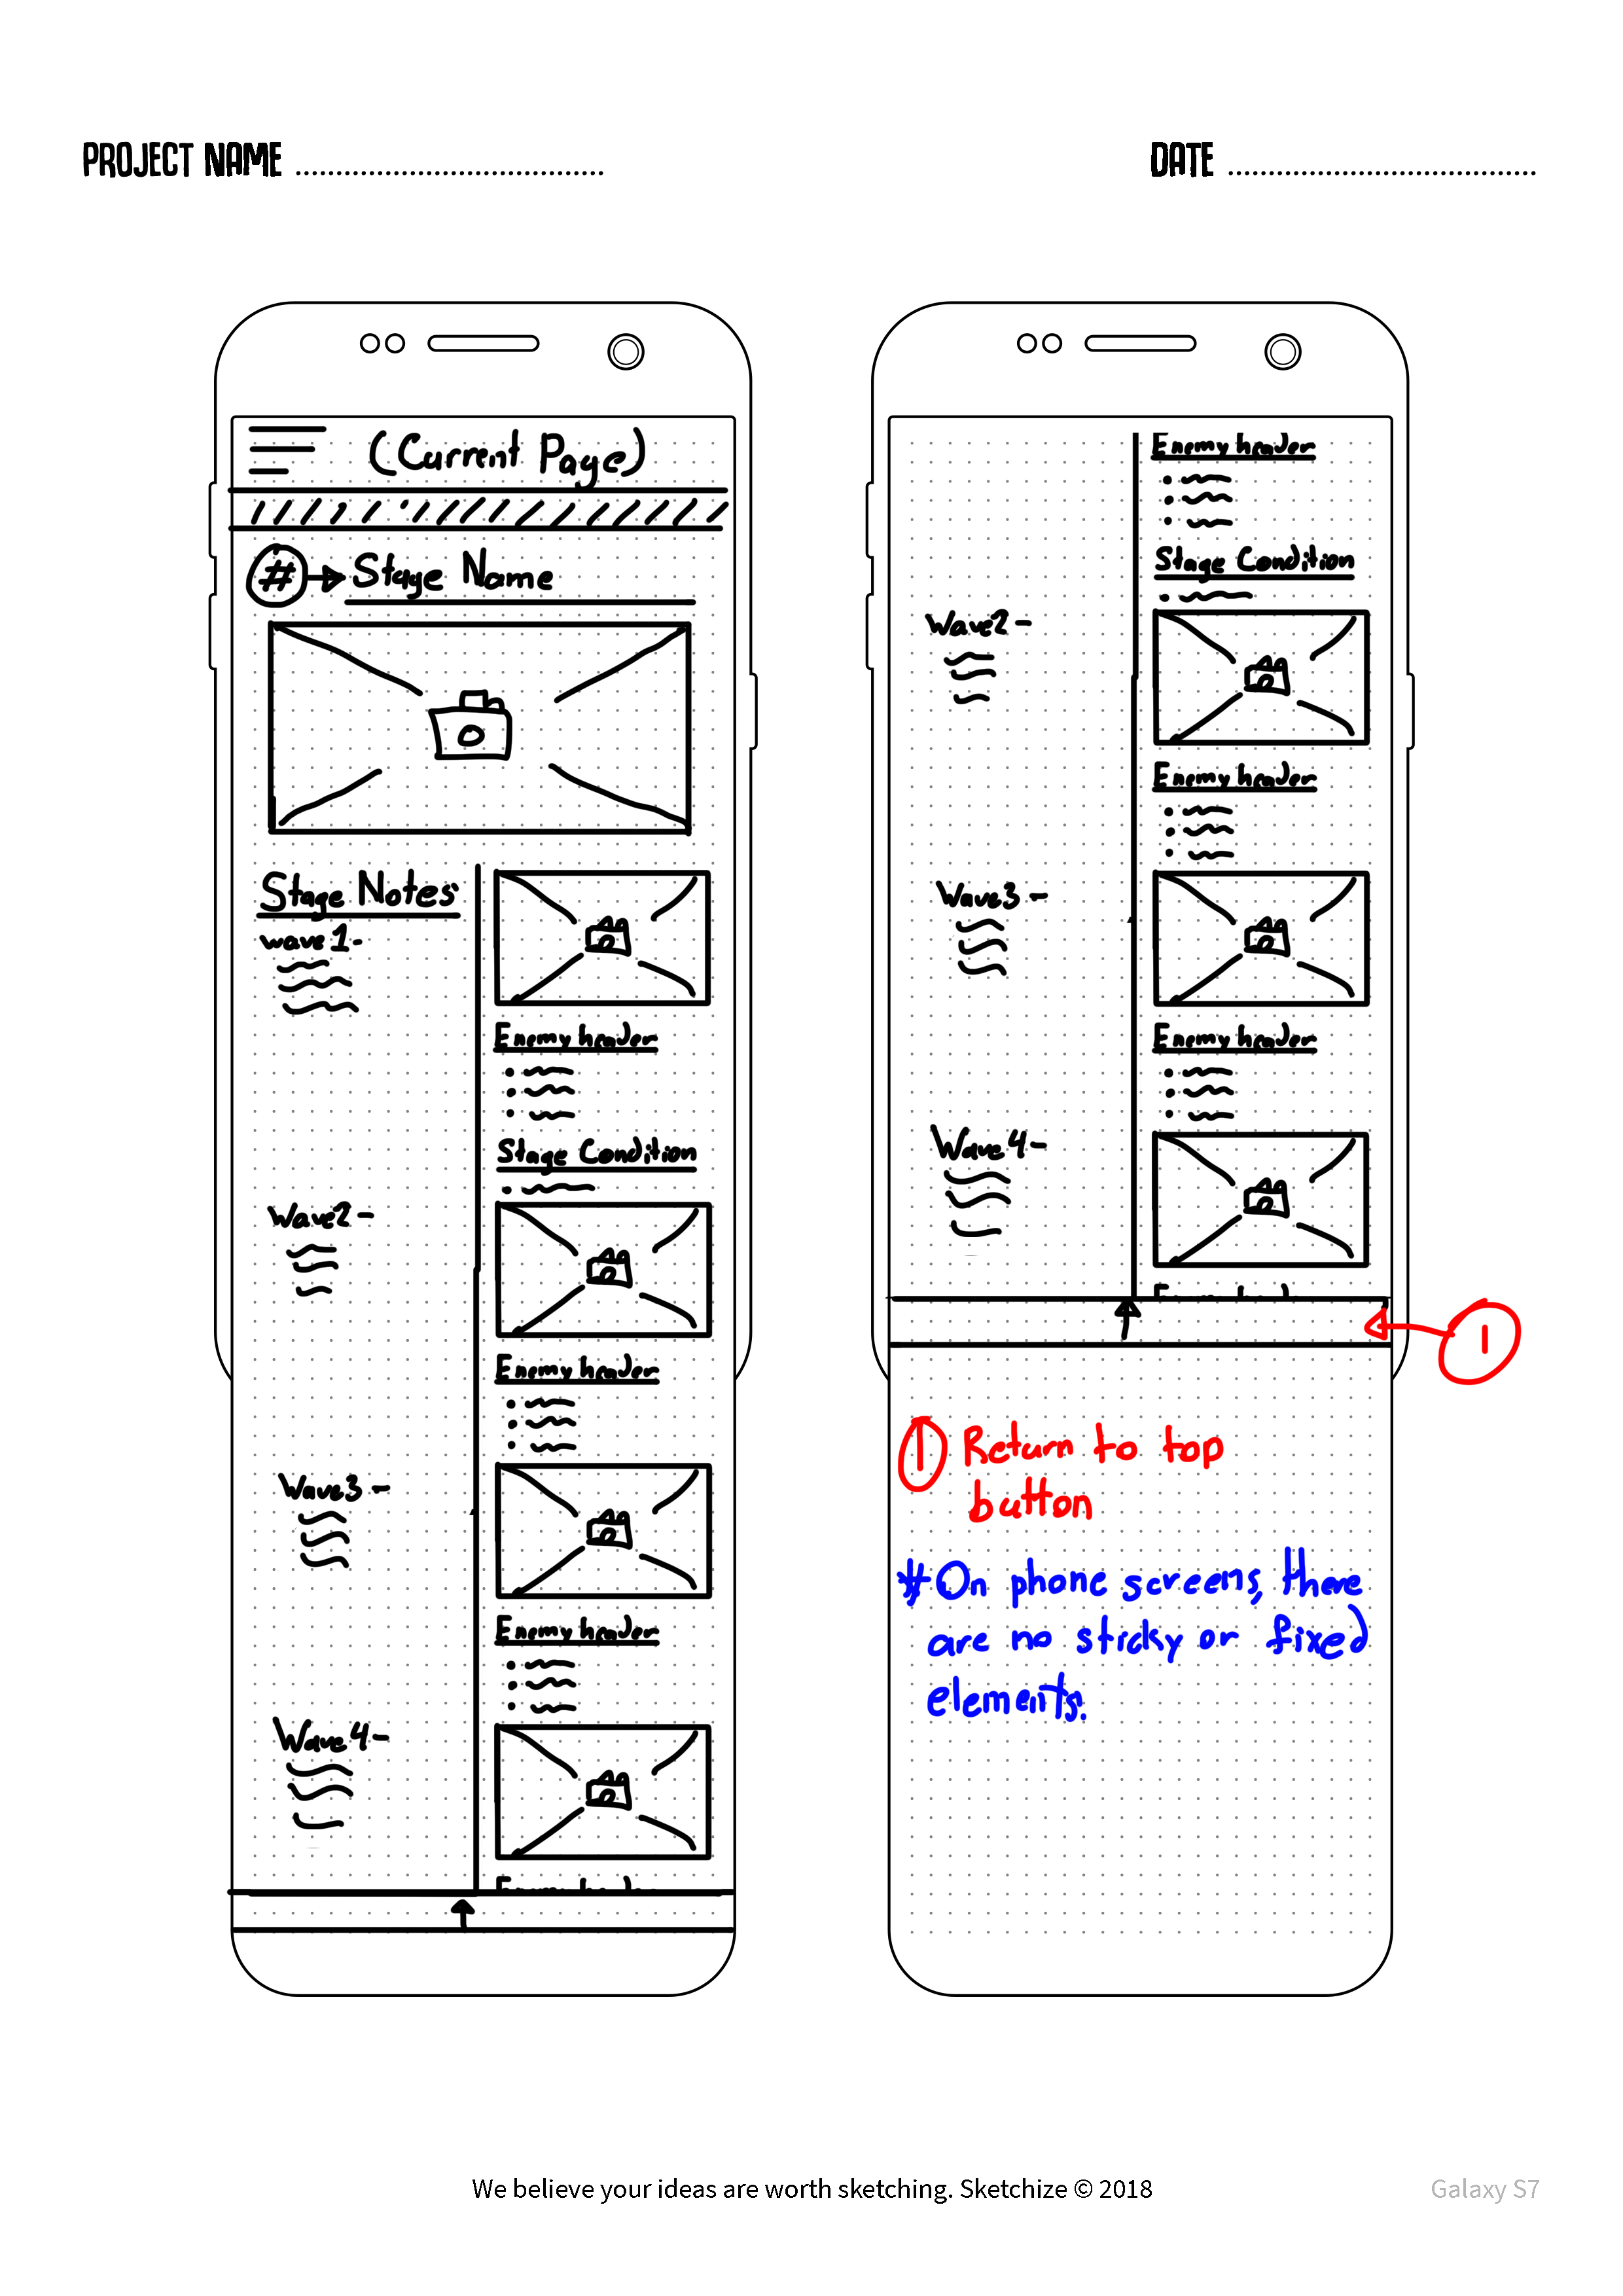 PROJECT NAME
DATE
(Current Page)
# Stage Name
Stage Notes
wave 1-
Enemy header
Stage Condition
Wave2-
Enemy header
Wave3-
Enemy header
Wave4-
Enemy header
Stage Condition
Wave2-
Enemy header
Wave3-
Enemy header
Wave4-
1
1 Return to top
button
* On phone screens, there
are no sticky or fixed
elements.
We believe your ideas are worth sketching. Sketchize © 2018
Galaxy S7